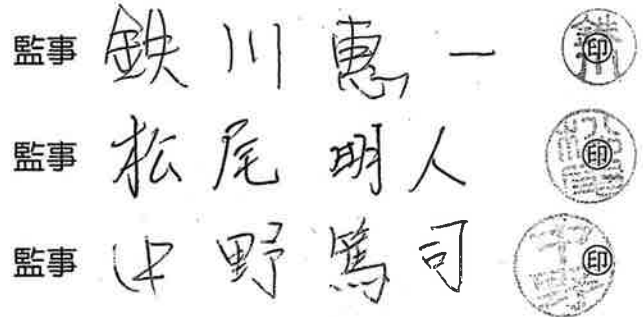 監事 鉄川惠一 ㊞
監事 松尾明人 ㊞
監事 中野篤司 ㊞